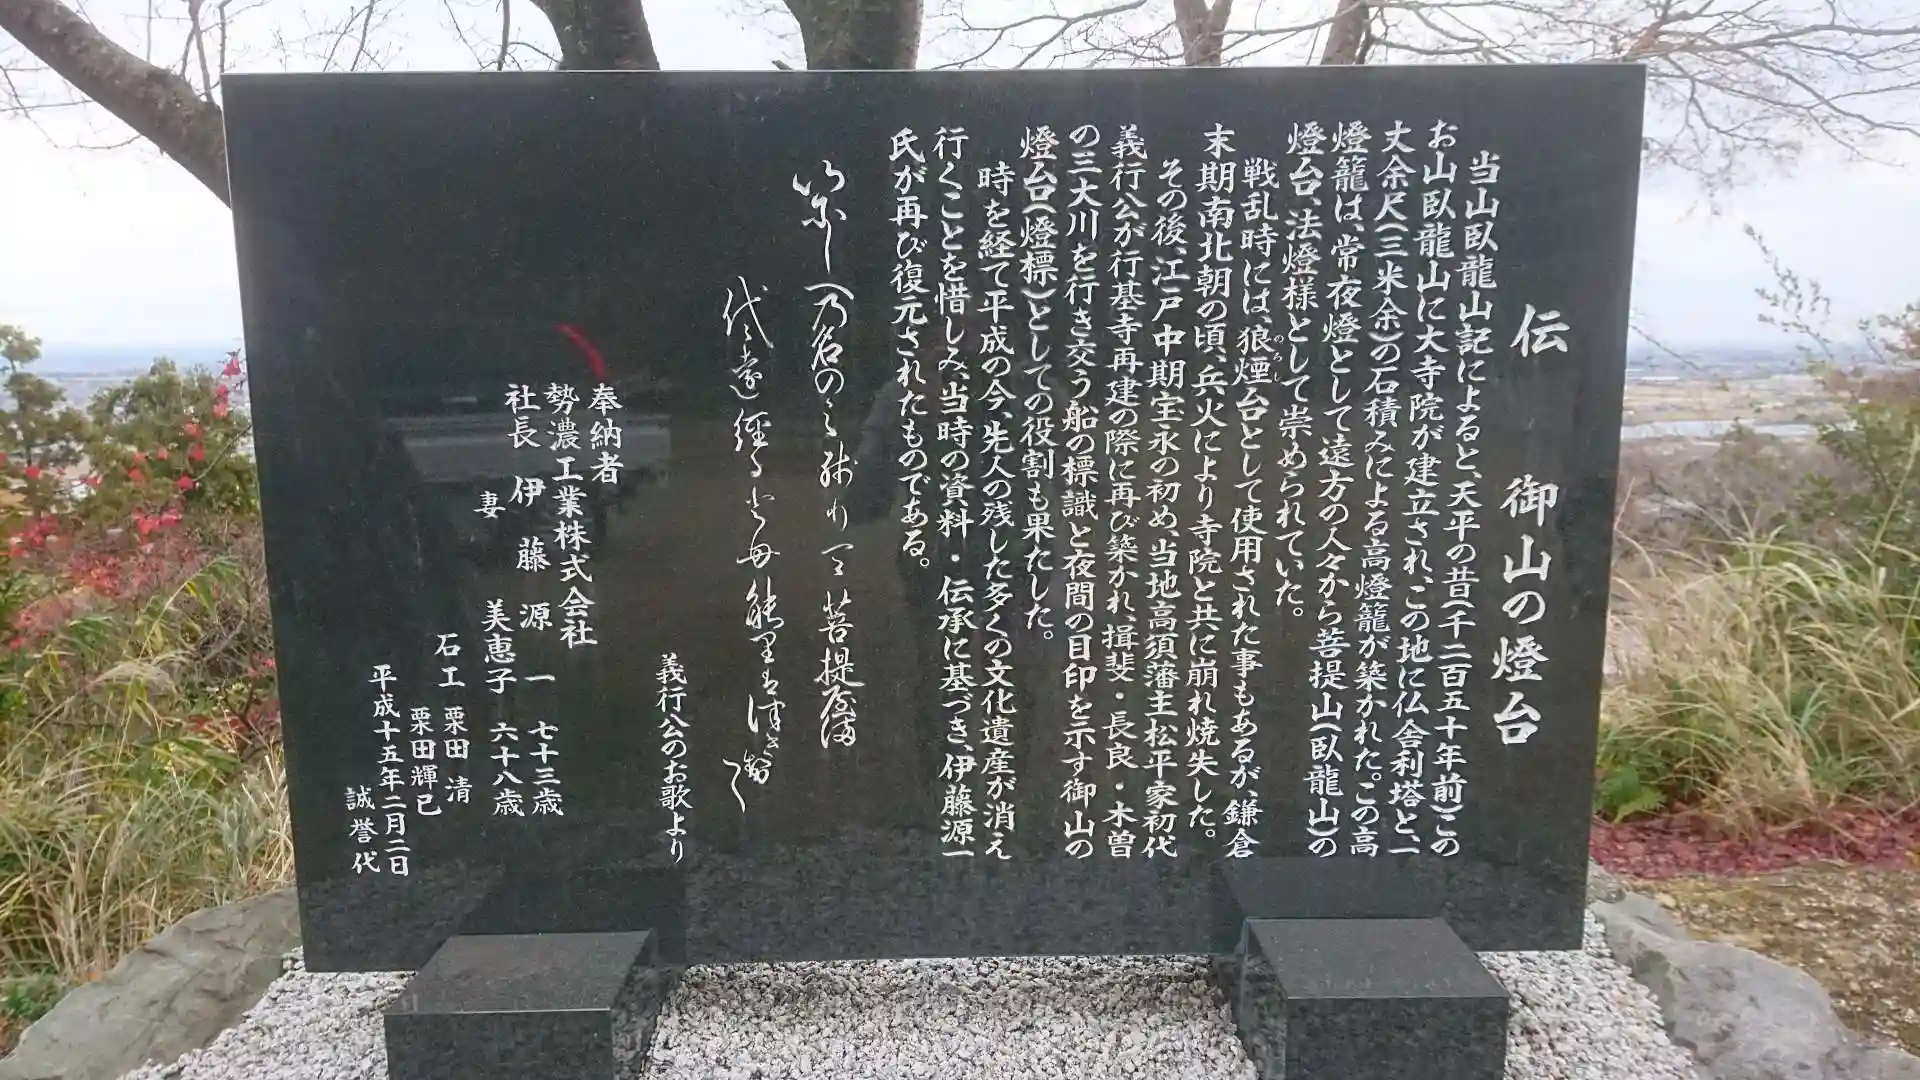 伝 御山の燈台
当山臥龍山記によると、天平の昔(千二百五十年前)この
お山臥龍山に大寺院が建立され、この地に仏舎利塔と、一
丈余尺(三米余)の石積みによる高燈籠が築かれた。この高
燈籠は、常夜燈として遠方の人々から菩提山(臥龍山)の
燈台、法燈様として崇められていた。
戦乱時には、狼煙台として使用された事もあるが、鎌倉
のろし
末期南北朝の頃、兵火により寺院と共に崩れ焼失した。
その後、江戸中期宝永の初め、当地高須藩主松平家初代
義行公が行基寺再建の際に再び築かれ、揖斐・長良・木曽
の三大川を行き交う船の標識と夜間の目印を示す御山の
燈台(燈標)としての役割も果たした。
時を経て平成の今、先人の残した多くの文化遺産が消え
行くことを惜しみ、当時の資料・伝承に基づき、伊藤源一
氏が再び復元されたものである。
義行公のお歌より
奉納者
勢濃工業株式会社
社長 伊藤源一 七十三歳
妻 美恵子 六十八歳
石工 栗田 清
栗田輝已
平成十五年二月二日
誠誉代